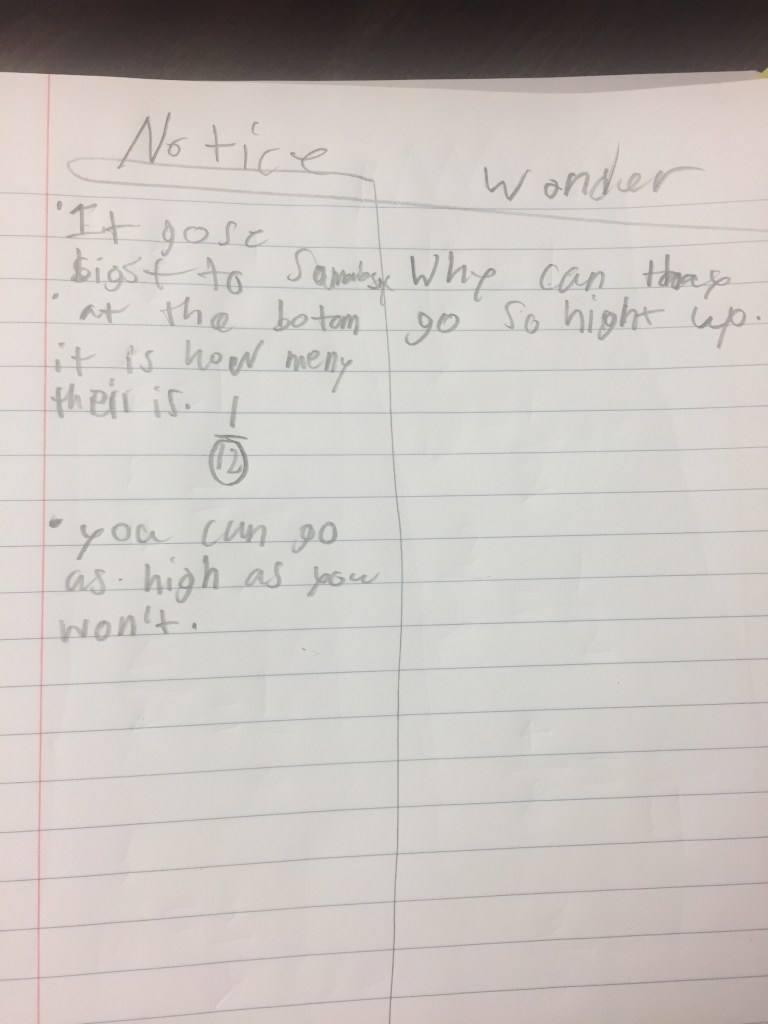 Notice
• It gose
bigst to
• at the botom
it is how meny
their is.
1
12
• you can go
as high as you
won't.
Wonder
Why can
go so hight up.